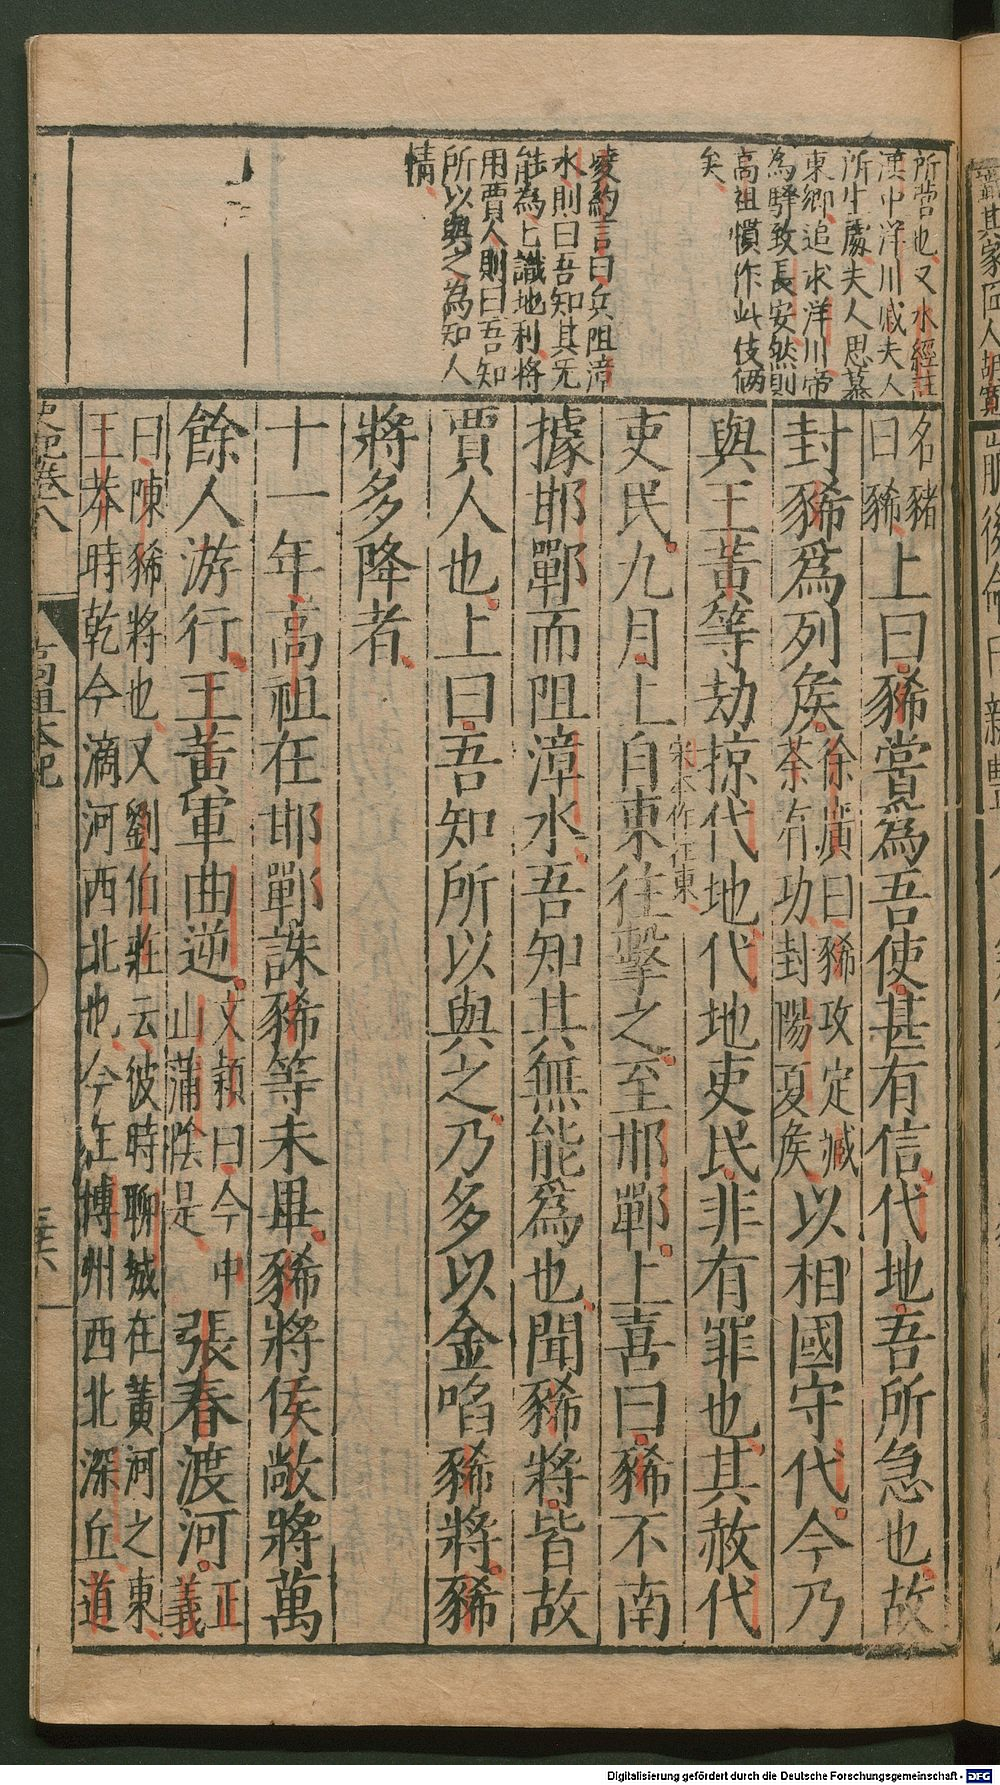 所營也又水經註
漢中洋川戚夫人
所生處夫人思慕
東鄉追求洋川帝
為驛致長安然則
高祖慣作此伎倆
矣
凌約言曰兵阻漳
水則曰吾知其无
能為也識地利將
用賈人則曰吾知
所以與之為知人
情
名豬
曰豨上曰豨嘗爲吾使甚有信代地吾所急也故
封豨爲列矦徐廣曰豨攻定臧
荼有功封陽夏矦以相國守代今乃
與王黃等劫掠代地代地吏民非有罪也其赦代
吏民九月上自東往擊之至邯鄲上喜曰豨不南
宋本作往東
據邯鄲而阻漳水吾知其無能爲也聞豨將皆故
賈人也上曰吾知所以與之乃多以金啗豨將豨
將多降者
十一年高祖在邯鄲誅豨等未畢豨將侯敞將萬
餘人游行王黃軍曲逆文穎曰今中
山蒲陰是張春渡河正
義
曰陳豨將也又劉伯莊云彼時聊城在黃河之東
王莽時乾今滴河西北也今在博州西北深丘道
史記卷八
高祖本紀
Digitalisierung gefördert durch die Deutsche Forschungsgemeinschaft - DFG